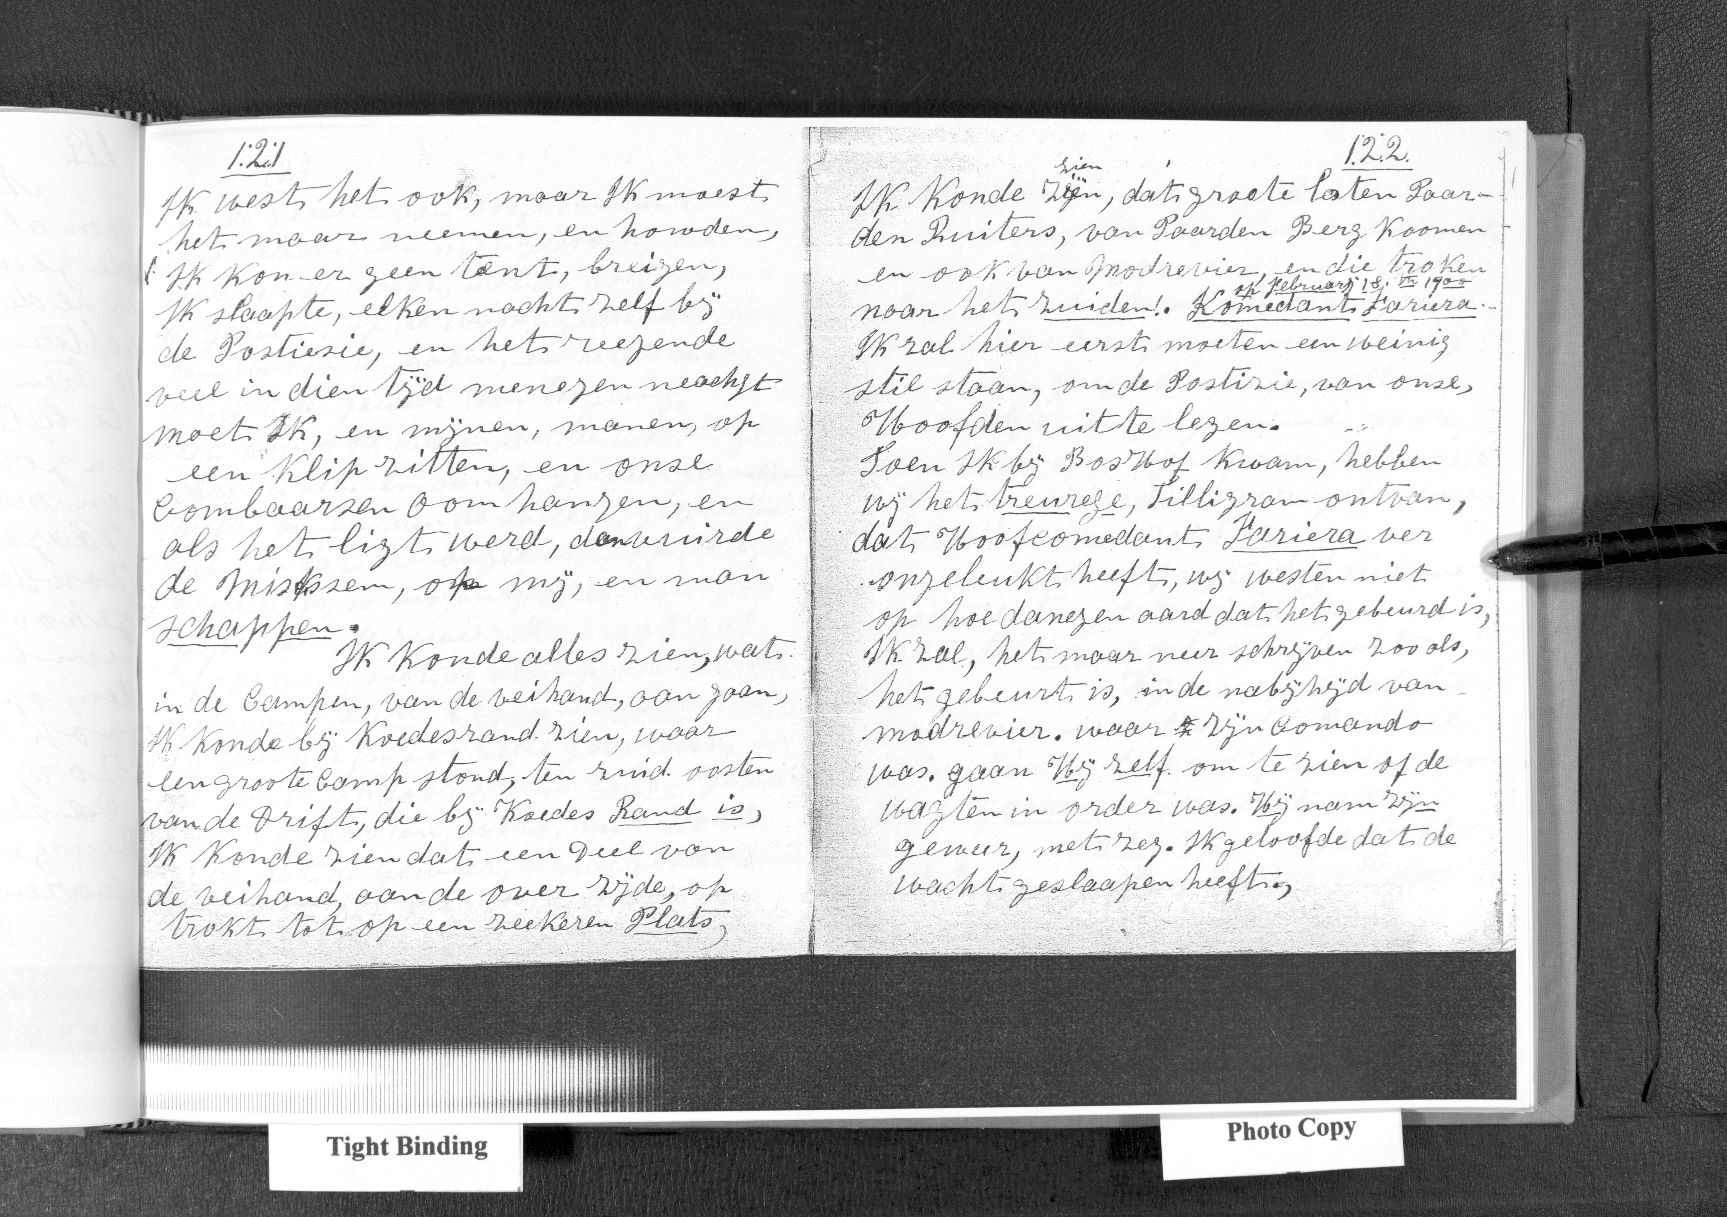 1.2.1
Ik west het ook, maar Ik moest
het maar neemen, en howden,
Ik kon er geen tent, breigen,
Ik slaapte, elken nacht zelf bÿ
de Postiesie, en het reegende
veel in dien tÿd menegen neachgt
moet Ik, en mÿnen, manen, op
een Klip zitten, en onse
Combaarsen oom hangen, en
als het ligt werd, dan vuurde
de Misksem, op mÿ, en man
schappen.
Ik Konde alles zien, wat
in de Campen, van de veihand, aan gaan,
Ik Konde bÿ Koedesrand zien, waar
een groote Camp stond, ten zuid oosten
van de Drift, die bÿ Koedes Rand is,
Ik Konde zien dat een Deel van
de veihand, aan de over zÿde, op
trokt tot op een zeekeren Plats,
1.2.2.
zien
Ik Konde, dat groote laten Paar-
den Ruiters, van Paarden Berg Koomen
en ook van Modrevier, en die troken
op Februarÿ 18, 1900
naar het zuiden!. Komedant Fariera.
Ik zal hier eerst moeten een weinig
stil staan, om de Postizie, van onse,
Hoofden uit te legen.
Toen Ik bÿ Bos Hof kwam, hebben
wÿ het treurege, Tilligram ontvan,
dat Hoofcomedant Fariera ver
ongelukt heeft, wÿ westen niet
op hoedanegen aard dat het gebeurd is,
Ik zal, het maar neer schrÿven zoo als,
het gebeurt is, in de nabÿhÿd van
modrevier. waar zÿn Comando
was. gaan Hÿ zelf om te zien of de
wagten in order was. Hÿ nam zÿn
geweer, met zeg. Ik geloofde dat de
wacht geslaapen heeft.,
Tight Binding
Photo Copy